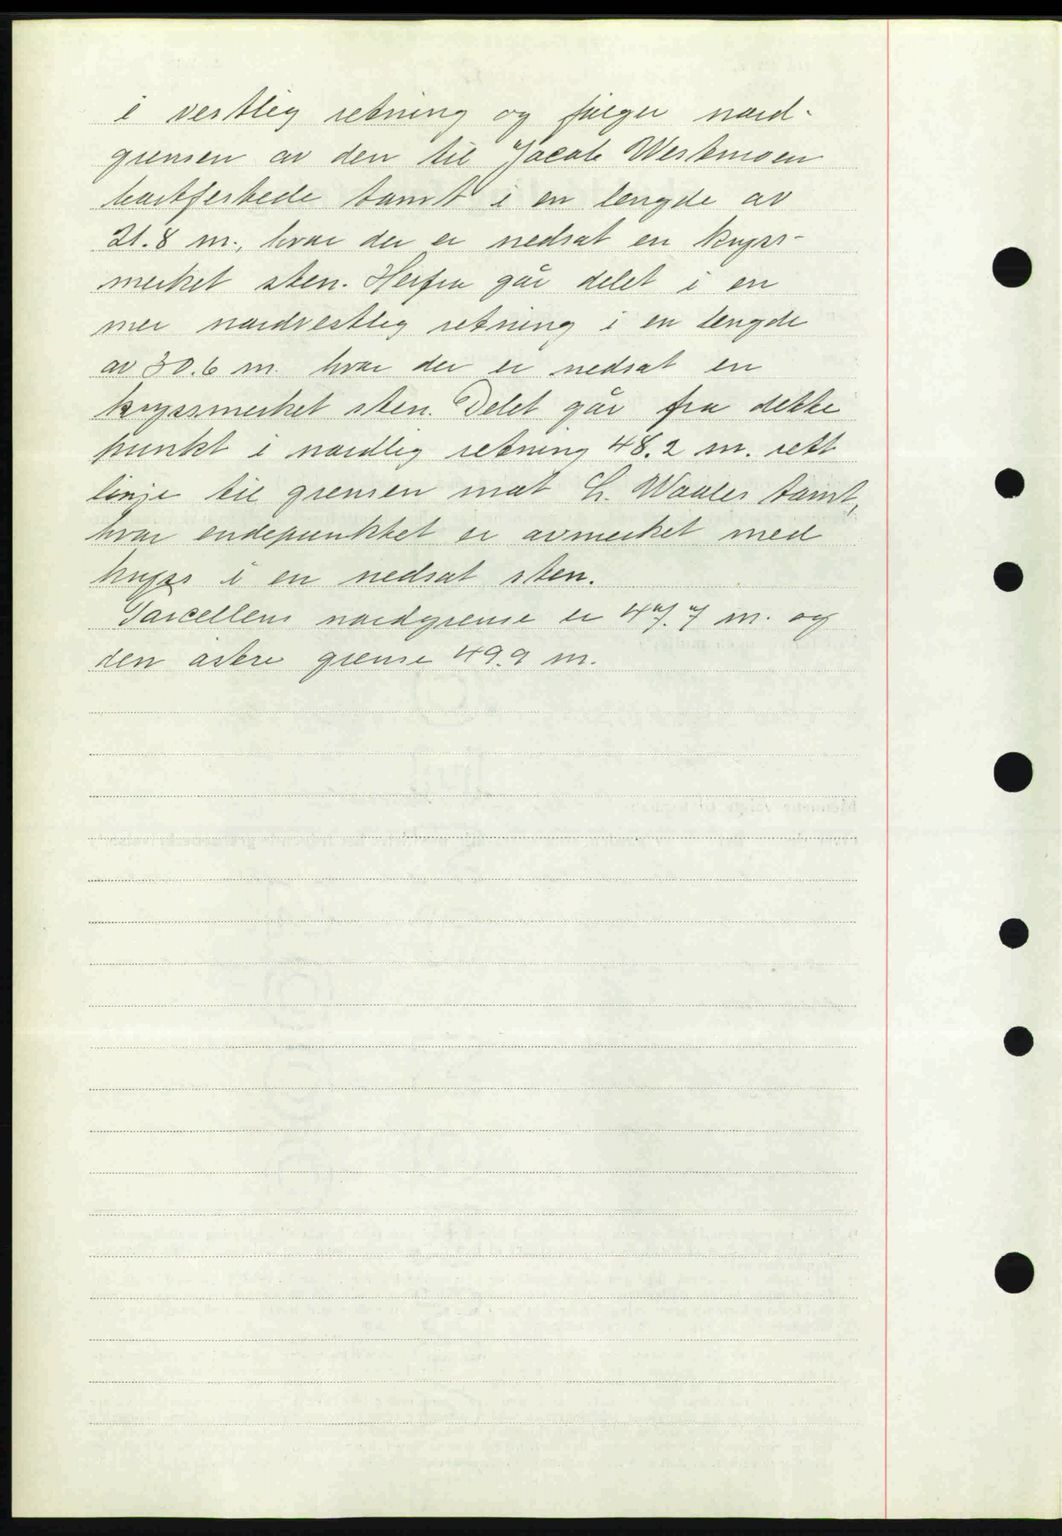 i vestlig retning og følger nord-
grensen av den til Jacob Westmoen
bortfestede tomt i en lengde av
21.8 m., hvor der er nedsat en kryss-
merket sten. Herfra går delet i en
mer nordvestlig retning i en lengde
av 30.6 m. hvor der er nedsat en
kryssmerket sten. Delet går fra dette
punkt i nordlig retning 48.2 m. rett
linje til grensen mot L. Waales tomt,
hvor endepunktet er avmerket med
kryss i en nedsat sten.
Parcellens nordgrense er 47.7 m. og
den østre grense 49.9 m.